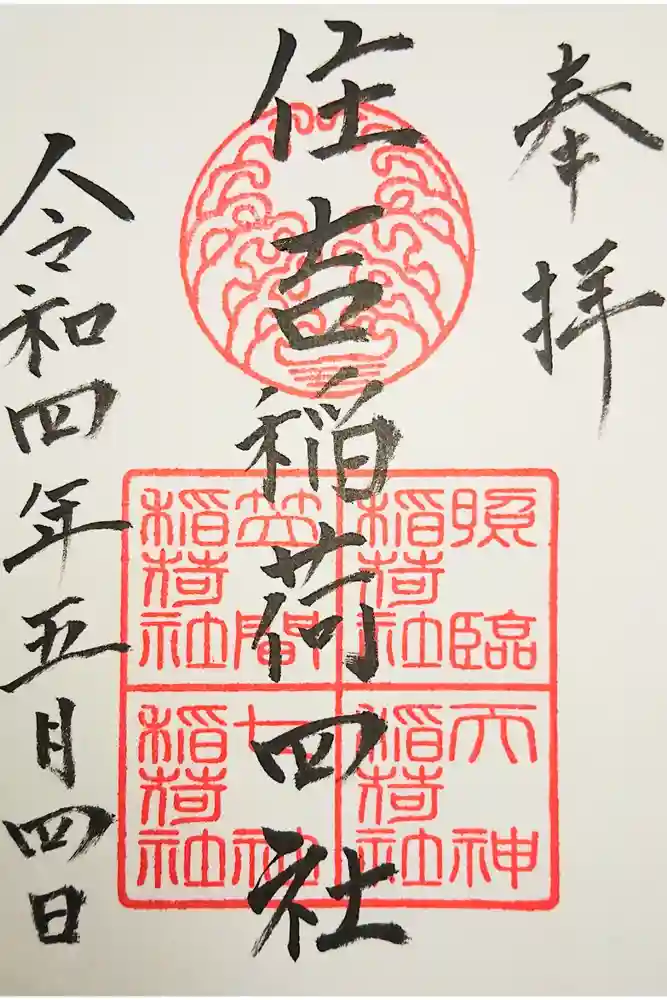 奉拝
住吉稲荷四社
令和四年五月四日
照臨
稲荷社
笠間
稲荷社
神
稲荷社
神
稲荷社